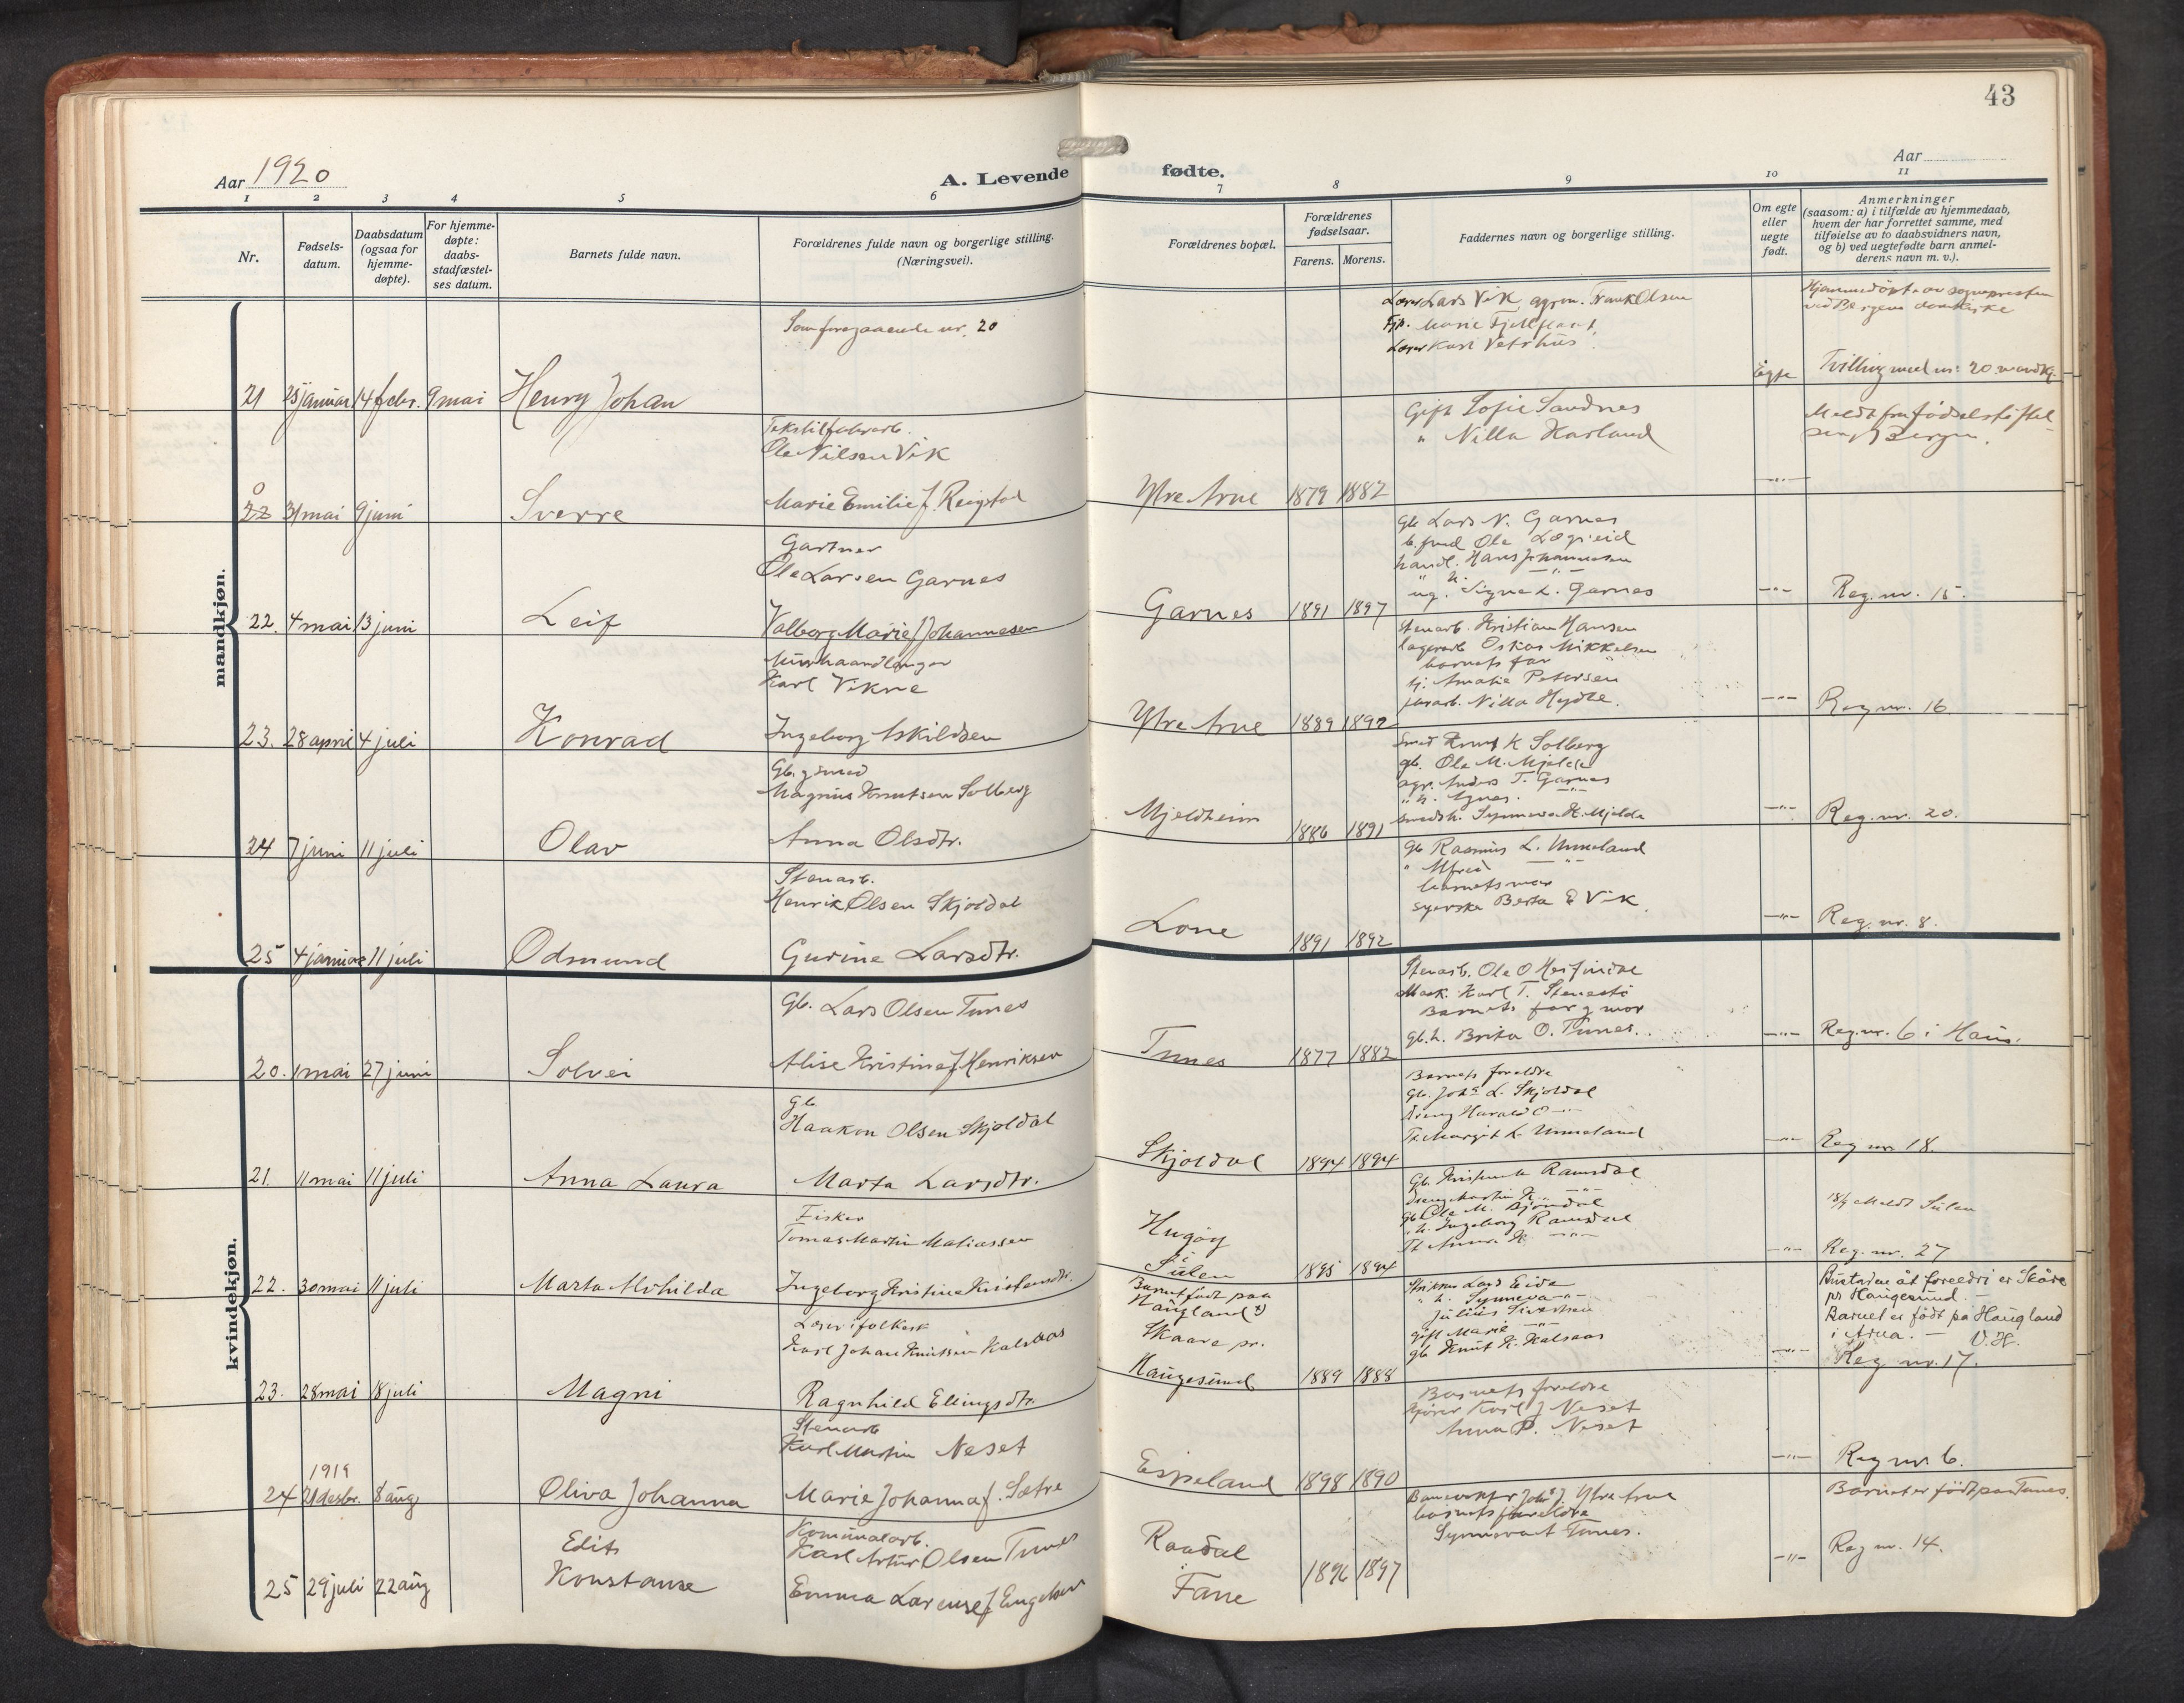 43
Aar 1920
A. Levende
fødte.
Aar
1 2 3 4 5 6 7 8 9 10 11
Nr.
Fødsels-
datum.
Daabsdatum
(ogsaa for
hjemme-
døpte).
For hjemme-
døpte:
daabs-
stadfæstel-
ses datum.
Barnets fulde navn.
Forældrenes fulde navn og borgerlige stilling.
(Næringsvei).
Forældrenes bopæl.
Forældrenes
fødselsaar.
Farens. Morens.
Faddernes navn og borgerlige stilling.
Om egte
eller
uegte
født.
Anmerkninger
(saasom: a) i tilfælde av hjemmedaab,
hvem der har forrettet samme, med
tilføielse av to daabsvidners navn,
og b) ved uegtefødte barn anmel-
derens navn m. v.).
mandkjøn.
Som foregaaende nr. 20
Lærer Lars Vik, agron. Frank Olsen
Marie
Lærer Karl Vetrhus
Hjemmedöpt av sognepresten
ved Bergens domkirke
21 25 januar 14 febr. 9 mai Henry Johan
Egte
Tvilling med nr. 20
Ole Nilsen Vik
Gift Sofie Sandnes
" Nilla Harland
Meldt fra Fødselsstiftel-
Bergen.
22 31 mai 9 juni Sverre
Marie Emilie f. Reigstad
Ytre Arne 1879 1882 —"—
Gartner
Ole Larsen Garnes
Gb Lars N. Garnes
Ole Lægreid
handl. Hans Johannessen
" h. —"—
ug. Signe L. Garnes
22. 4 mai 13 juni Leif
Valborg Marie f Johannesen
Garnes 1891 1897 —"— Reg. nr. 15.
Murhaandlanger
Karl Vikne
Stenarb. Kristian Hansen
lagerarb Oskar Mikkelsen
barnets far
tj. Amalie Petersen
Nilla Hydle.
23. 28 april 4 juli Konrad
Ingeborg Askildsen
Ytre Arne 1889 1892 —"— Reg nr. 16
Gb. g smed
Magnus Knutsen Solberg
Smed Knut K Solberg
gb. Ole M. Mjelde
agr. Anders T. Garnes
" h. Agnes —"—
smedh. Synneva K. Mjelde
24 7 juni 11 juli Olav
Anna Olsdtr.
Mjeldheim 1886 1891 —"— Reg. nr. 20.
Stenarb.
Henrik Olsen Skjoldal
gb Rasmus L. Unneland
" Alfred —"—
barnets mor
syerske Berta E Vik
25 4 januar 11 juli Odmund
Gurine Larsdtr.
Lone 1891 1892 —"— Reg. nr. 8.
kvindekjøn.
Gb. Lars Olsen Tunes
Stenarb. Ole O Herfindal
Mask. Karl T.
Barnets far g mor
gb.h. Brita O. Tunes.
20. 1 mai 27 juni Solvei
Alise Kristine f Henriksen
Tunes 1877 1882 —"— Reg. nr. 6 i Haus.
Gb
Haakon Olsen Skjoldal
Barnets foreldre
Gb. Johs L. Skjoldal
Dreng Harald O —"—
Margit L. Unneland
21. 11 mai 11 juli Anna Laura
Marta Larsdtr.
Skjoldal 1894 1894 —"— Reg nr 18.
Fisker
Tomas Martin Matiassen
Ramsdal
Dreng Martin K. —"—
gb Ole M. Bjöndal
" h. Ingeborg Ramsdal
Meldt Sulen
22. 30 mai 11 juli Marta Mihilda
Ingeborg Kristine Kristensdtr.
Hugöy
i
Sulen 1895 1894 —"— Reg. nr. 27
Lærer i folkesk
Karl Johan Knutsen Kalsaas
Barnet født paa
Haugland
Skaare pr.
Haugesund 1889 1888
Lars Eide
" h. Synneva —"—
Julius Sivertsen
gift Marie —"—
gb Knut K. Kalsaas
Bustaden åt foreldri er Skåre
pr Haugesund. —
Barnet er født på Haugland
i Arna. — V. H.
Reg nr. 17.
23. 28 mai 18 juli Magni
Ragnhild Elingsdtr.
Stenarb
Karl Martin Neset
Barnets foreldre
Karl J Neset
Anna P. Neset
1919
24 21 desbr. 8 aug Oliva Johanna
Marie Johanna f. Sætre
Espeland 1898 1890 —"— Reg nr. 6.
Kommunalarb.
Karl Artur Olsen Tunes
Johs J Ytre Arne
barnets foreldre
Tunes.
Barnet er födt paa Tunes.
25 29 juli 22 aug Edit
Konstanse
Emma Larense f Engelsen
Raadal
i
Fane
1896 1897 —"— Reg nr. 14.